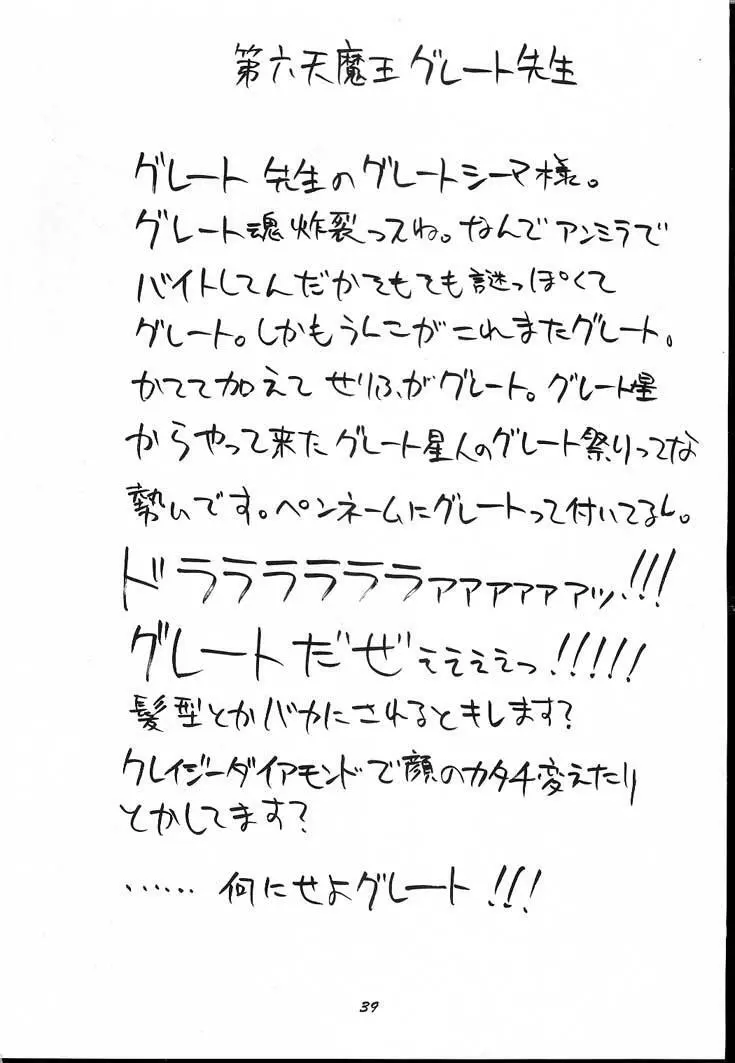 第六天魔王グレート先生
グレート先生のグレートシーマ様。
グレート魂炸裂っスね。なんでアンミラで
バイトしてんだかとてもとても謎っぽくて
グレート。しかもうんこがこれまたグレート。
かてて加えてせりふがグレート。グレート星
からやって来たグレート星人のグレート祭りってな
勢いです。ペンネームにグレートって付いてるし。
ドララララララァァァァァァッ!!!
グレートだぜぇぇぇぇっ!!!!!
髪型とかバカにされるとキレます?
クレイジーダイアモンドで顔のカタチ変えたり
とかしてます?
……何にせよグレート!!!
39